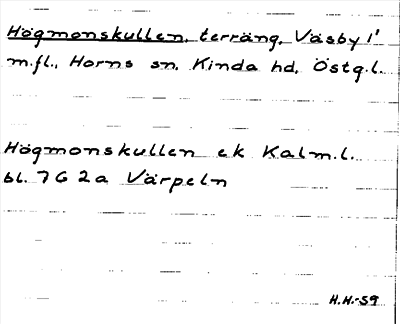 Högmonskullen, terräng, Väsby 1'
m.fl., Horns sn, Kinda hd, Östg.l.
Högmonskullen ek Kalm.l.
bl. 7G 2a Värpeln
H.H.-59